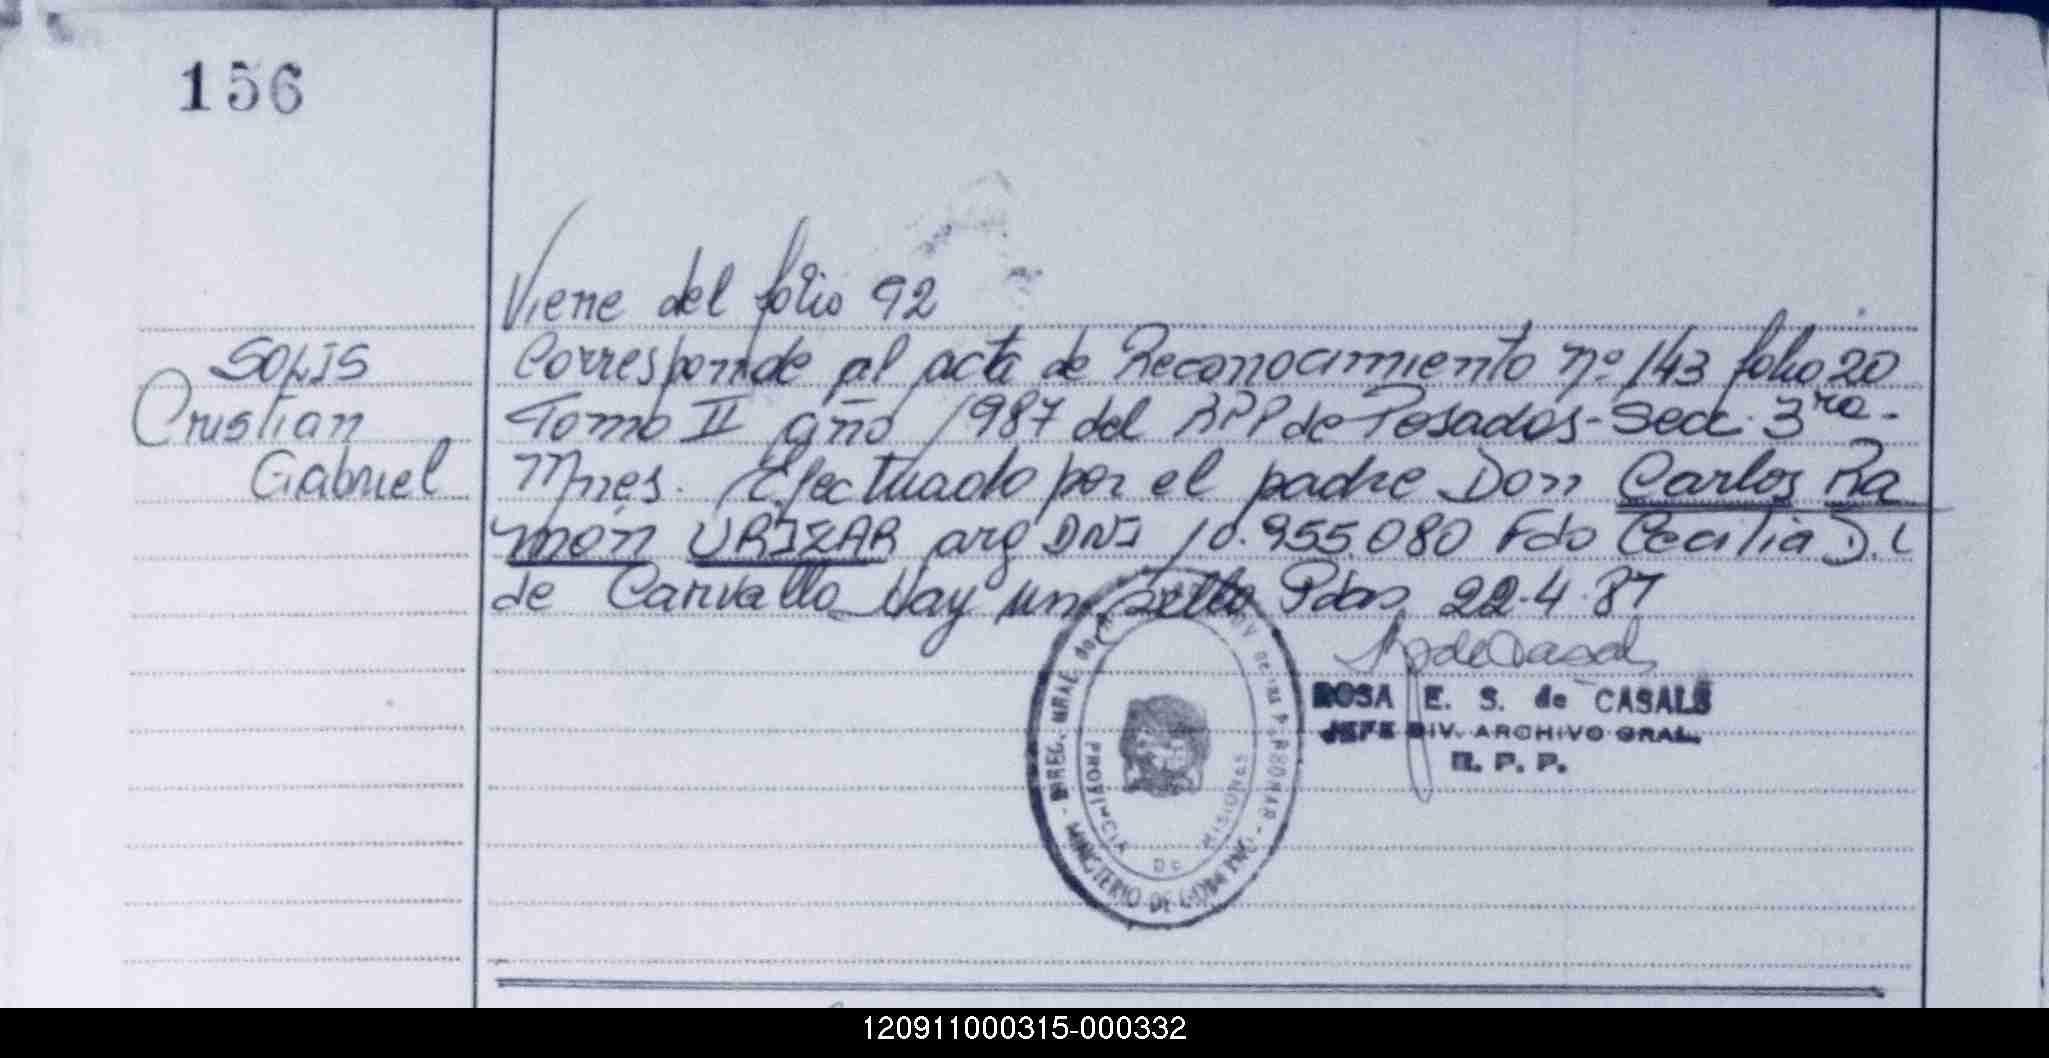 156
Viene del folio 92
SOLIS
Cristian
Gabriel
Corresponde al acta de Reconocimiento nº 143 folio 20
Tomo II año 1987 del RPP de Posadas - Secc. 3ra.
Mnes. Efectuado por el padre Don Carlos Ra
món URIZAR arg DNI 10.955.080 Fdo Cecilia D. L
de Carvallo Hay un sello Pdas 22-4-87
ROSA E. S. de CASALS
JEFE DIV. ARCHIVO GRAL.
R. P. P.
PROVINCIA DE MISIONES
MINISTERIO DE GOBIERNO
120911000315-000332